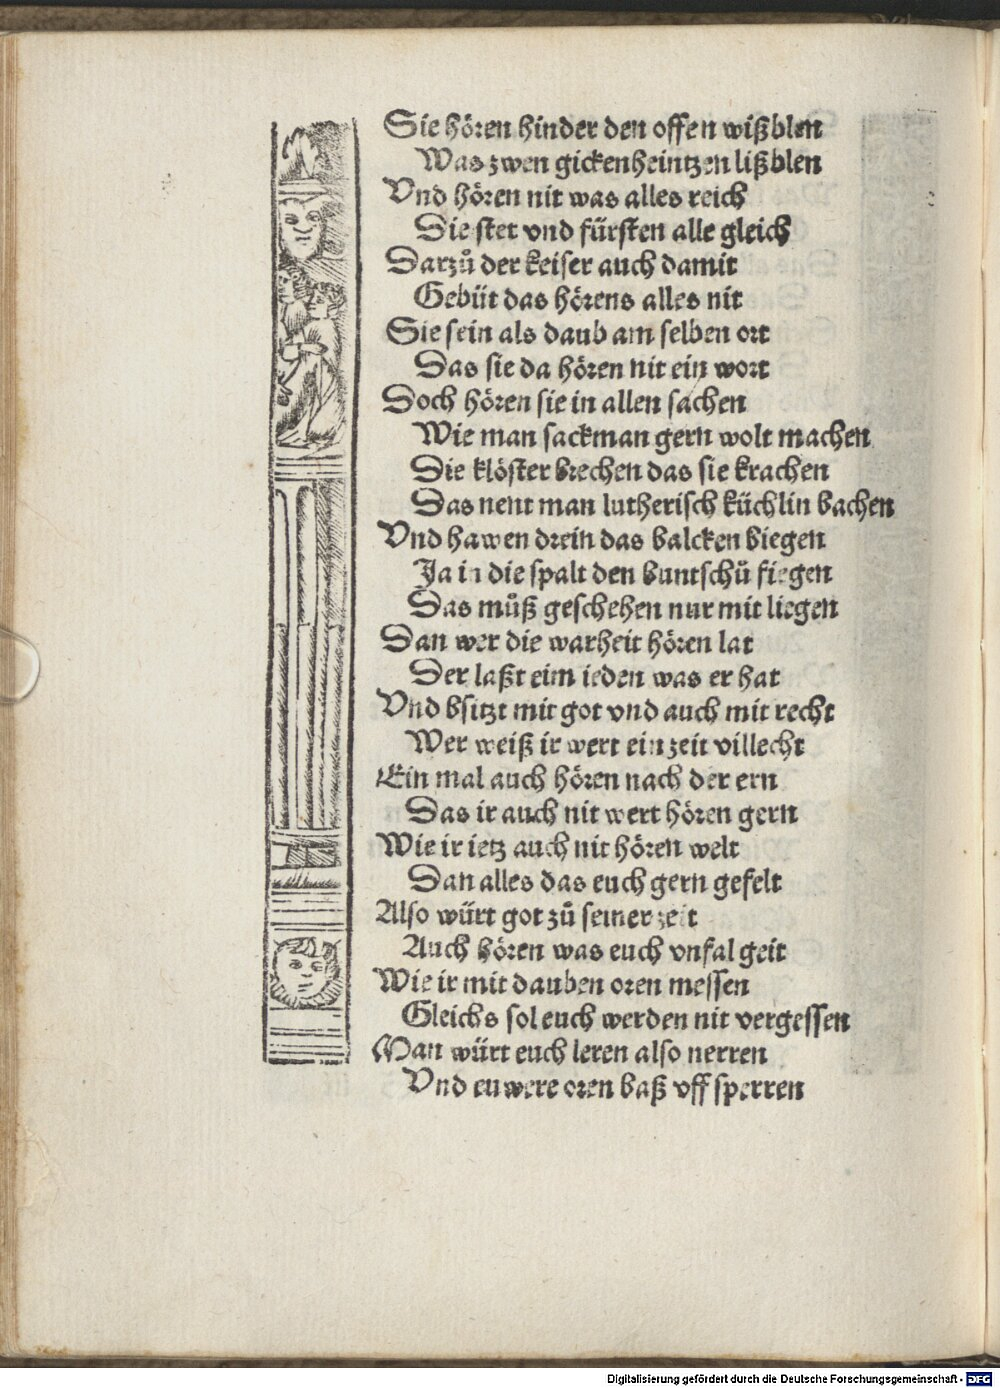 Sie hören hinder den offen wißblen
Was zwen gickenheintzen lißblen
Vnd hören nit was alles reich
Die stet vnd fürsten alle gleich
Darzů der keiser auch damit
Gebüt das hörens alles nit
Sie sein als daub am selben ort
Das sie da hören nit ein wort
Doch hören sie in allen sachen
Wie man sackman gern wolt machen
Die klöster brechen das sie krachen
Das nent man lutherisch küchlin bachen
Vnd hawen drein das balcken biegen
Ja in die spalt den buntschů fiegen
Das můß geschehen nur mit liegen
Dan wer die warheit hören lat
Der laßt eim ieden was er hat
Vnd bsitzt mit got vnd auch mit recht
Wer weiß ir wert ein zeit villecht
Ein mal auch hören nach der ern
Das ir auch nit wert hören gern
Wie ir ietz auch nit hören welt
Dan alles das euch gern gefelt
Also würt got zů seiner zeit
Auch hören was euch vnfal geit
Wie ir mit dauben oren messen
Gleichs sol euch werden nit vergessen
Man würt euch leren also nerren
Vnd euwere oren baß vff sperren
Digitalisierung gefördert durch die Deutsche Forschungsgemeinschaft - DFG